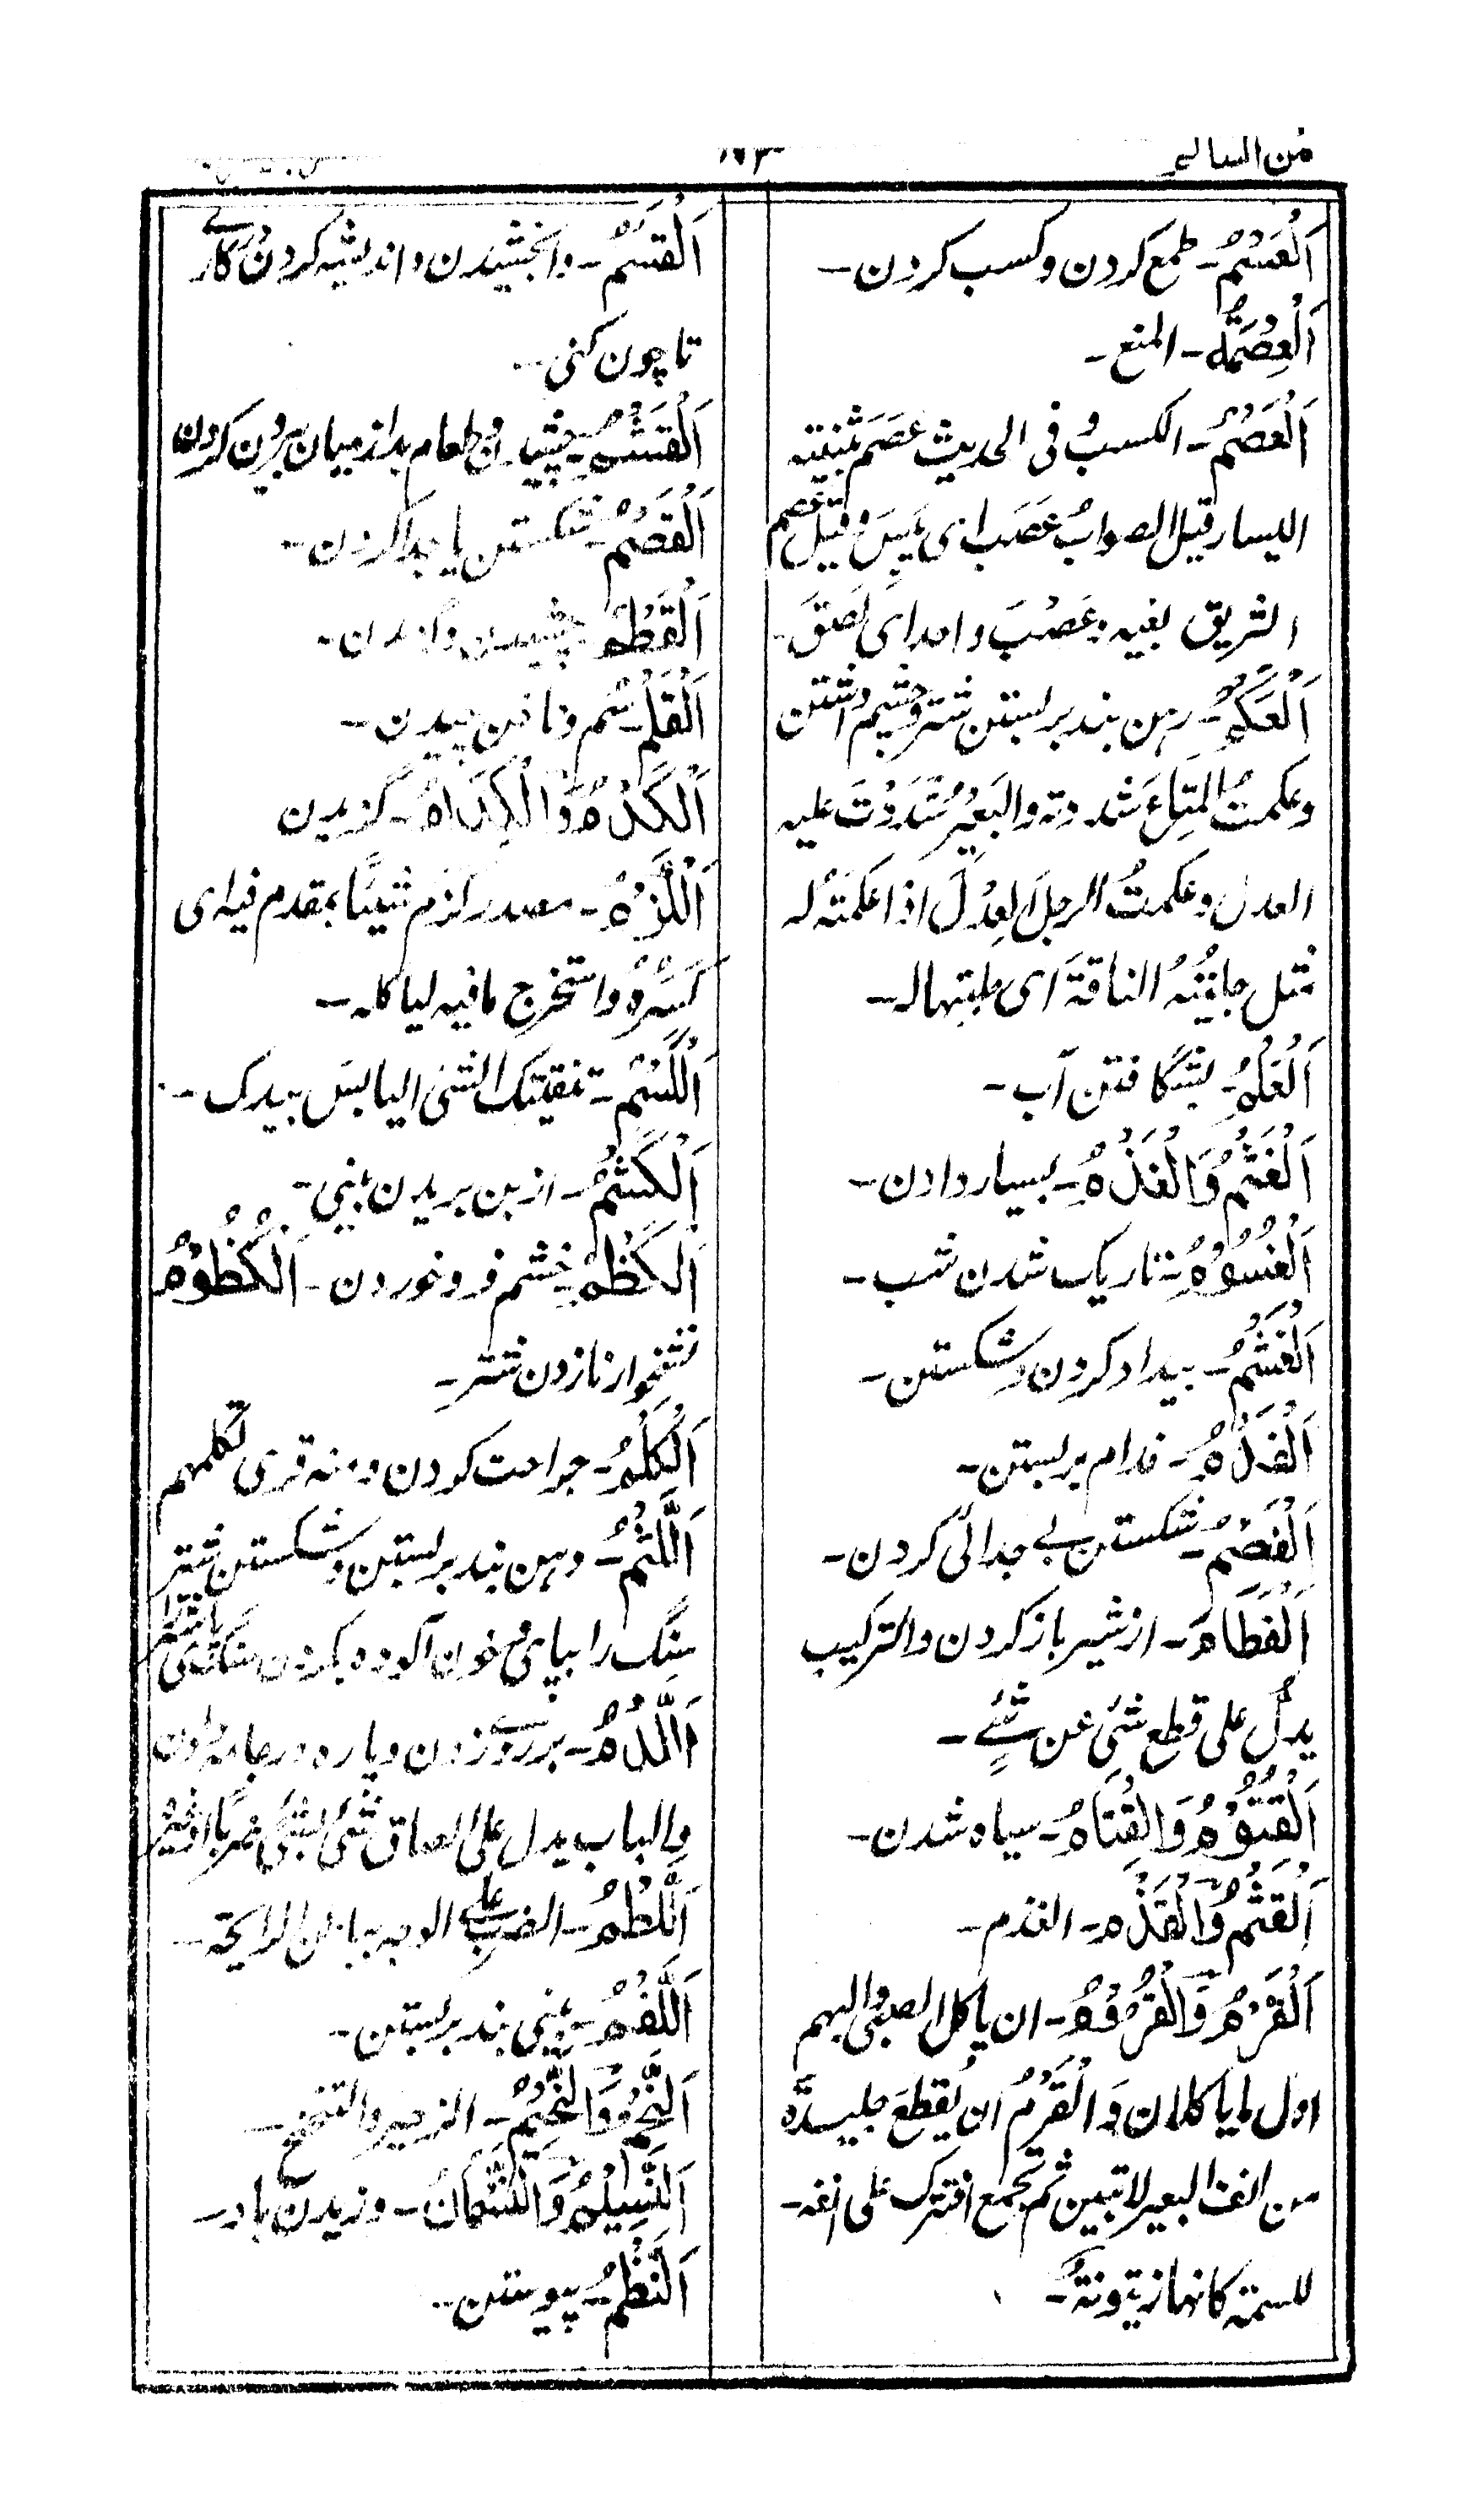 من السالم
اَلْعَسْمُ۔ طمع کردن و کسب کردن۔
اَلْعِصْمَةُ۔ المنع۔
اَلْعَصْمُ۔ الکسبُ و فی الحدیث عصَم ثنیته
الیسار قیل الصوابُ عَصَب ای یَبِسَ و قیل عصم
الریق بفیه و عَصَبَ و احد ای لَصَقَ۔
اَلْعَکْمُ۔ بند بر بستن شتر و چشم داشتن
و عکمتُ المتاعَ شددته و البَعِیْرَ شَدَدْتَ علیه
العدل و عکمتُ الرجلَ العِدْلَ اذا عکمتَه له
مثل حلبتُهُ الناقةَ ای حلبتها له۔
اَلْعَلْمُ۔ بشگافتن آب۔
اَلْغَثْمُ وَالْغَذْمُ۔ بسیار دادن۔
اَلْغُسُوْمُ۔ تاریک شدن شب۔
اَلْغَشْمُ۔ بیداد کردن و شکستن۔
اَلْفَدْمُ۔ فدام بر بستن۔
اَلْفَصْمُ۔ شکستن بے جدائی کردن۔
اَلْفِطَامُ۔ از شیر باز کردن والترکیب
یدلُّ علی قطع شئ عن شئے۔
اَلْقُتُوْمُ وَالْقِتَامُ۔ سیاه شدن۔
اَلْقَثْمُ وَالْقَذْمُ۔ الغذم۔
اَلْقَرْمُ وَالْقُرُوْمُ۔ ان یاکل الصبی والبهم
اول ما یاکلان وَالْقَرْمُ ان یُقطَعَ جلیدةٌ
من انف البعیر لاتبین ثم تجمع افتترک علی انفه۔
للسمة کانها زیتونةٌ۔
اَلْقَسْمُ۔ وا بخشیدن و اندیشه کردن کارے
تا چون کنی۔
اَلْقَشْمُ۔ طعام بد از میان بیرون کردن
اَلْقَصْمُ۔ شکستن یا جدا کردن۔
اَلْقَطْمُ۔ چشیدن و گزیدن۔
اَلْقَلْمُ۔ سم و ناخن چیدن۔
اَلْکَدْمُ وَالْکِدَامُ۔ گزیدن
اَلْکَزْمُ۔ مصدر کزم شیئًا بمقدم فیه ای
کَسَرَهُ و استخرج ما فیه لیاکله۔
اَلْکَسْمُ۔ تنقیتک الشئ الیابسَ بیدک۔
اَلْکَشْمُ۔ از بن بریدن بینی۔
اَلْکَظْمُ۔ خشم فرو خوردن۔ اَلْکُظُوْمُ
نشخوار نازدن شتر۔
اَلْکَلْمُ۔ جراحت کردن و منه قرئ تکلمهم
اَللَّثْمُ۔ دهن بند بر بستن و شکستن شتر
سنگ را بپای و خون آلوده کردن سنگ
اَللَّدْمُ۔ بر روے زدن و پاره در جامه
والباب یدل علی الصاق شئ بشئ ضربًا
اَللَّطْمُ۔ الضرب علی الوجه بباطن الراحة۔
اَللَّفْمُ۔ بینی بند بر بستن۔
اَلنَّحْمُ وَالنَّحِیْمُ۔ الزحیر والتنحنح۔
اَلنَّسِیْمُ وَالنَّسَمَانُ۔ وزیدن باد۔
اَلنَّظْمُ۔ پیوستن۔